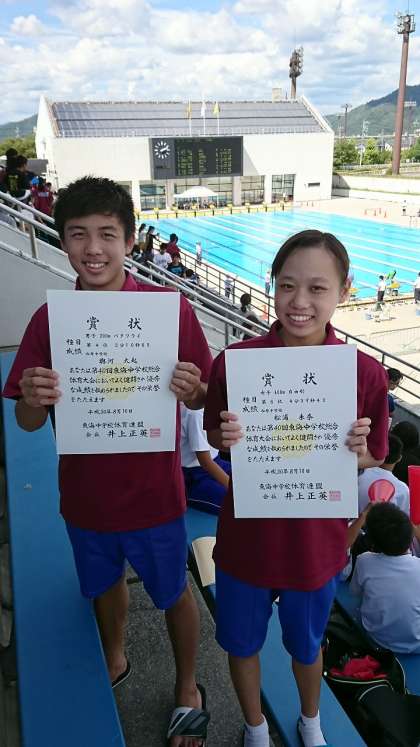 賞状
種目 男子 200m バタフライ
成績 第4位 2分10秒85
奥河 大起
あなたは第40回東海中学校総合
体育大会においてよく健闘され優秀
な成績を収められたのでその栄誉
をたたえます
平成30年8月10日
東海中学校体育連盟
会長 井上正英
賞状
種目 女子 400m 自由形
成績
松浦
あなたは第40回東海中学校総合
体育大会においてよく健闘され優秀
な成績を収められたのでその栄誉
をたたえます
平成30年8月10日
東海中学校体育連盟
会長 井上正英